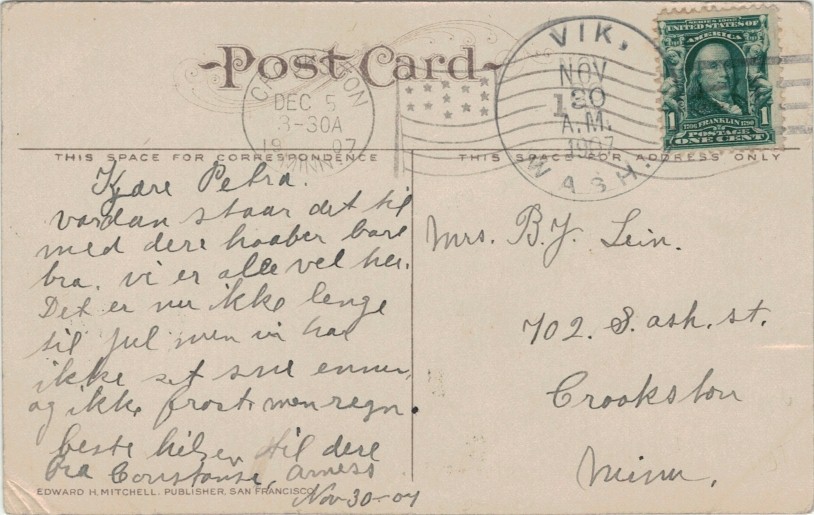 Post Card
CROOKSTON
DEC 5
3-30A
1907
MINN.
VIK,
NOV
30
A.M.
1907
WASH.
SERIES 1902
UNITED STATES OF
AMERICA
1 1
FRANKLIN
POSTAGE
ONE CENT
THIS SPACE FOR CORRESPONDENCE
THIS SPACE FOR ADDRESS ONLY
Kjære Petra.
vordan staar det til
med dere haaber bare
bra, vi er alle vel her.
Det er nu ikke lenge
til jul men vi har
ikke set sne ennu,
og ikke frost men regn.
beste hilsen til dere
fra Constanse, Arness
Nov-30-07
Mrs. B.J. Lein.
702. S. ash. st.
Crookston
Minn,
EDWARD H. MITCHELL, PUBLISHER, SAN FRANCISCO